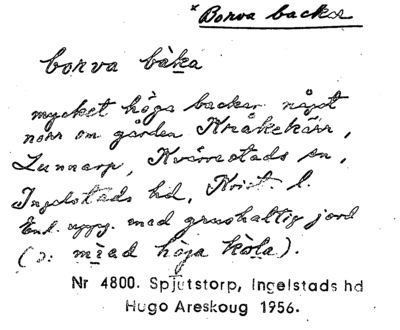 * Borva backar
borva bàka
mycket höga backar något
norr om gården Kråkekärr,
Lunnarp, Kverrestads sn,
Ingelstads hd, Krist. l.
Enl. uppg. med grushaltig jord
(ɔ: med höga).
Nr 4800. Spjutstorp, Ingelstads hd
Hugo Areskoug 1956.